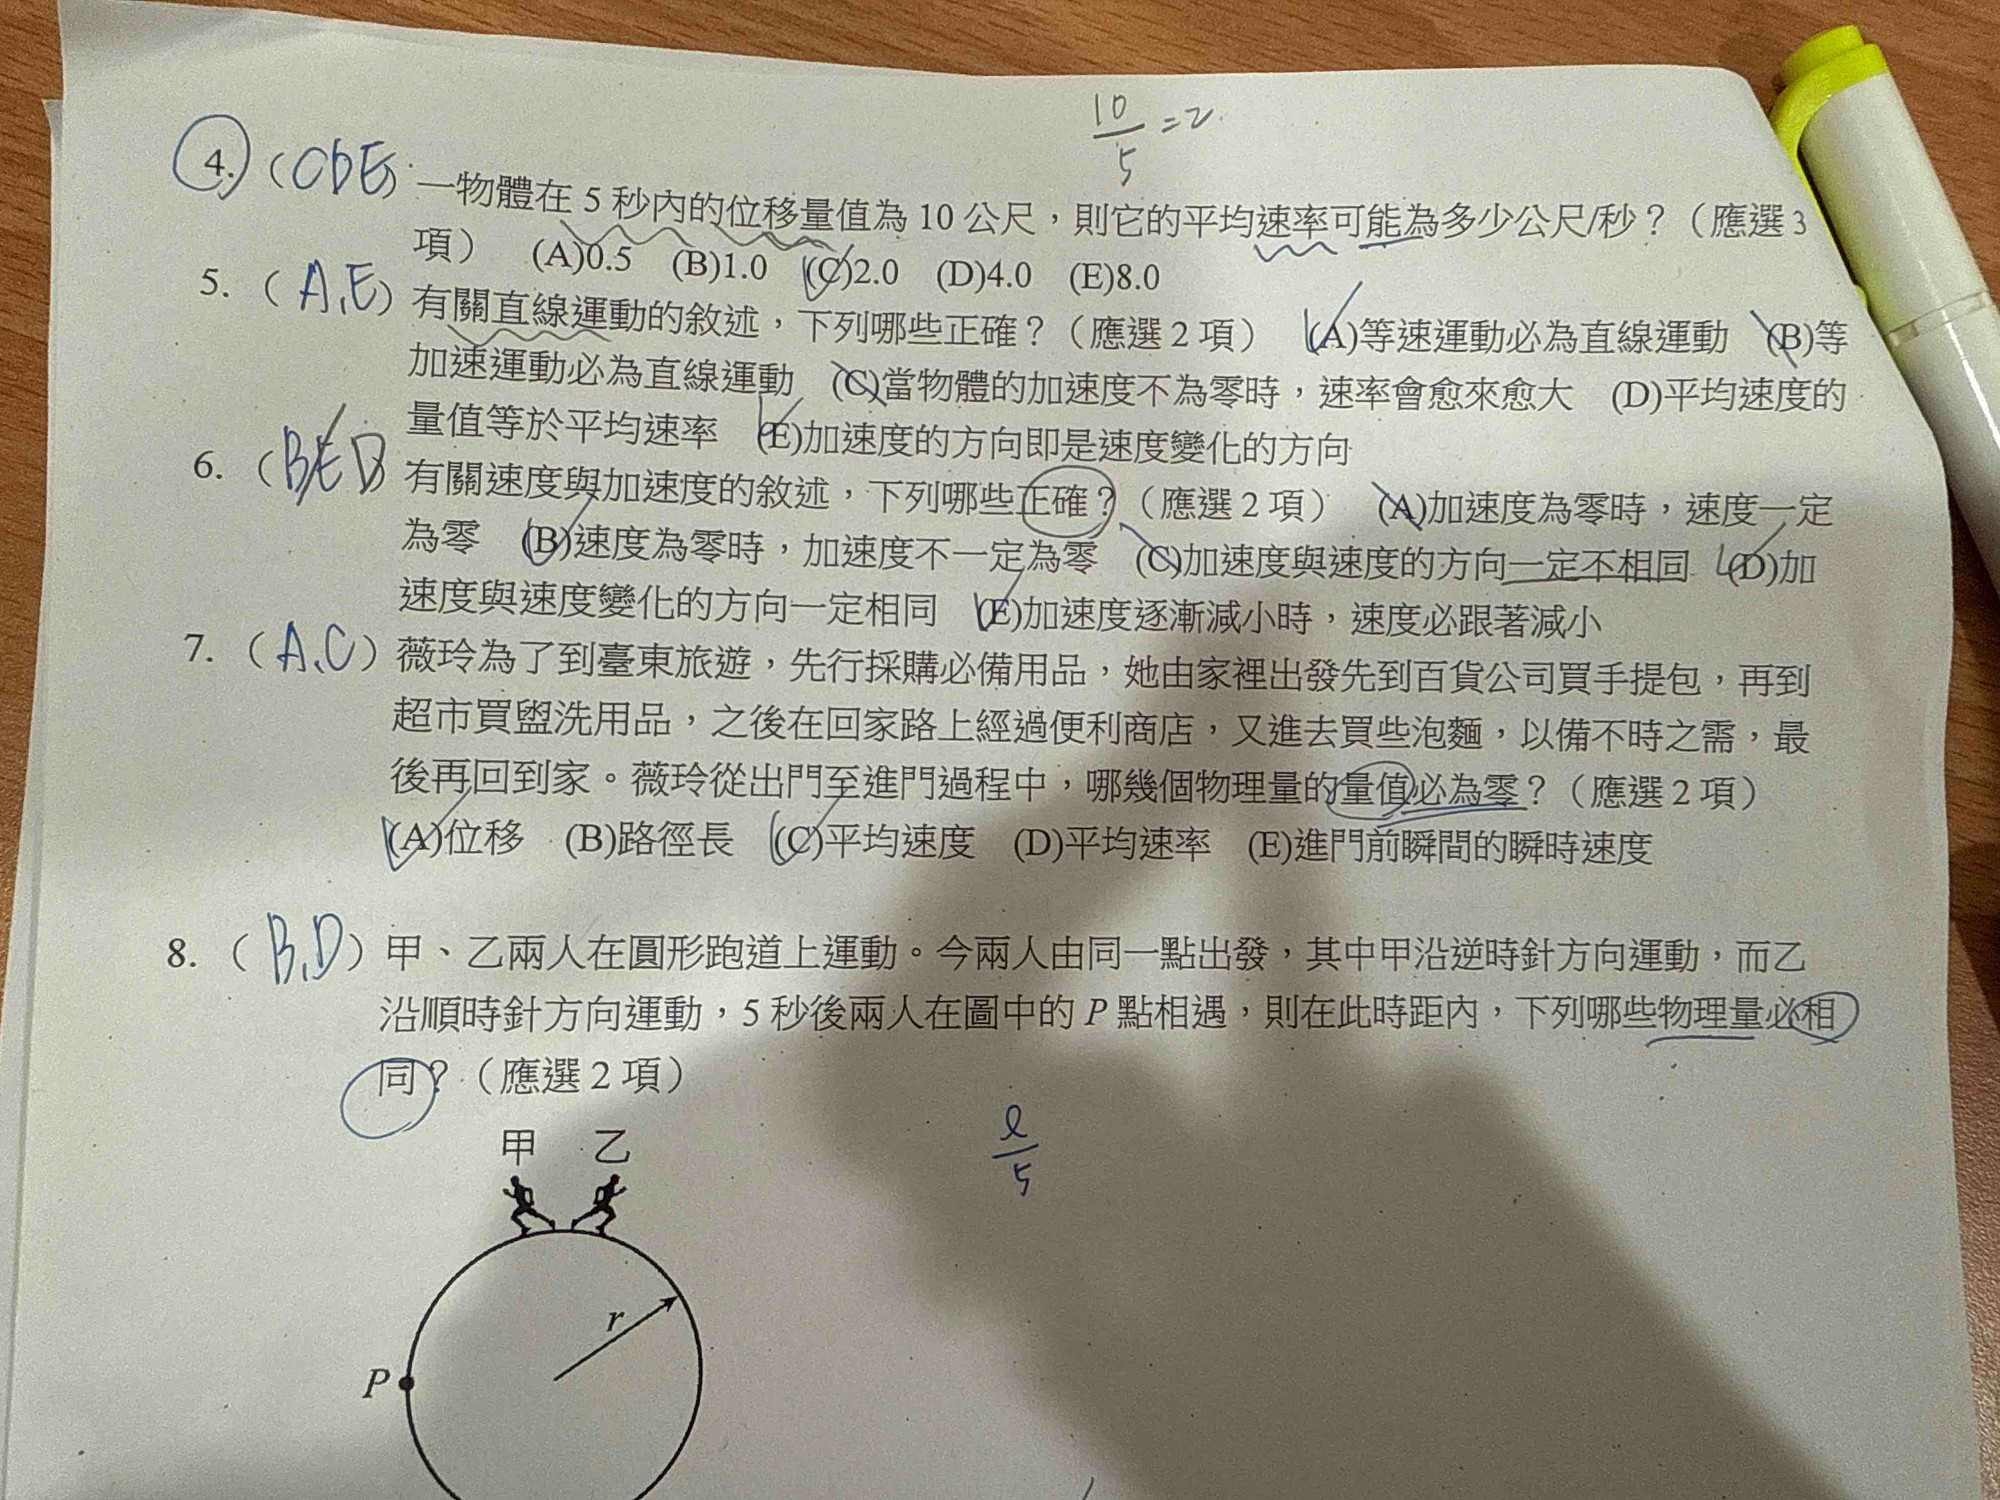 10/5 = 2
4. (CDE) 一物體在 5 秒內的位移量值為 10 公尺，則它的平均速率可能為多少公尺/秒？（應選 3
項） (A)0.5 (B)1.0 (C)2.0 (D)4.0 (E)8.0
5. (A、E) 有關直線運動的敘述，下列哪些正確？（應選 2 項） (A)等速運動必為直線運動 (B)等
加速運動必為直線運動 (C)當物體的加速度不為零時，速率會愈來愈大 (D)平均速度的
量值等於平均速率 (E)加速度的方向即是速度變化的方向
6. (BED) 有關速度與加速度的敘述，下列哪些正確？（應選 2 項） (A)加速度為零時，速度一定
為零 (B)速度為零時，加速度不一定為零 (C)加速度與速度的方向一定不相同 (D)加
速度與速度變化的方向一定相同 (E)加速度逐漸減小時，速度必跟著減小
7. (A、C) 薇玲為了到臺東旅遊，先行採購必備用品，她由家裡出發先到百貨公司買手提包，再到
超市買盥洗用品，之後在回家路上經過便利商店，又進去買些泡麵，以備不時之需，最
後再回到家。薇玲從出門至進門過程中，哪幾個物理量的量值必為零？（應選 2 項）
(A)位移 (B)路徑長 (C)平均速度 (D)平均速率 (E)進門前瞬間的瞬時速度
8. (B、D) 甲、乙兩人在圓形跑道上運動。今兩人由同一點出發，其中甲沿逆時針方向運動，而乙
沿順時針方向運動，5 秒後兩人在圖中的 P 點相遇，則在此時距內，下列哪些物理量必相
同？（應選 2 項）
ℓ/5
甲 乙
r
P